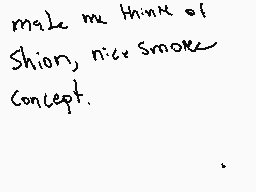 make me think of
Shion, nice smoke
concept.